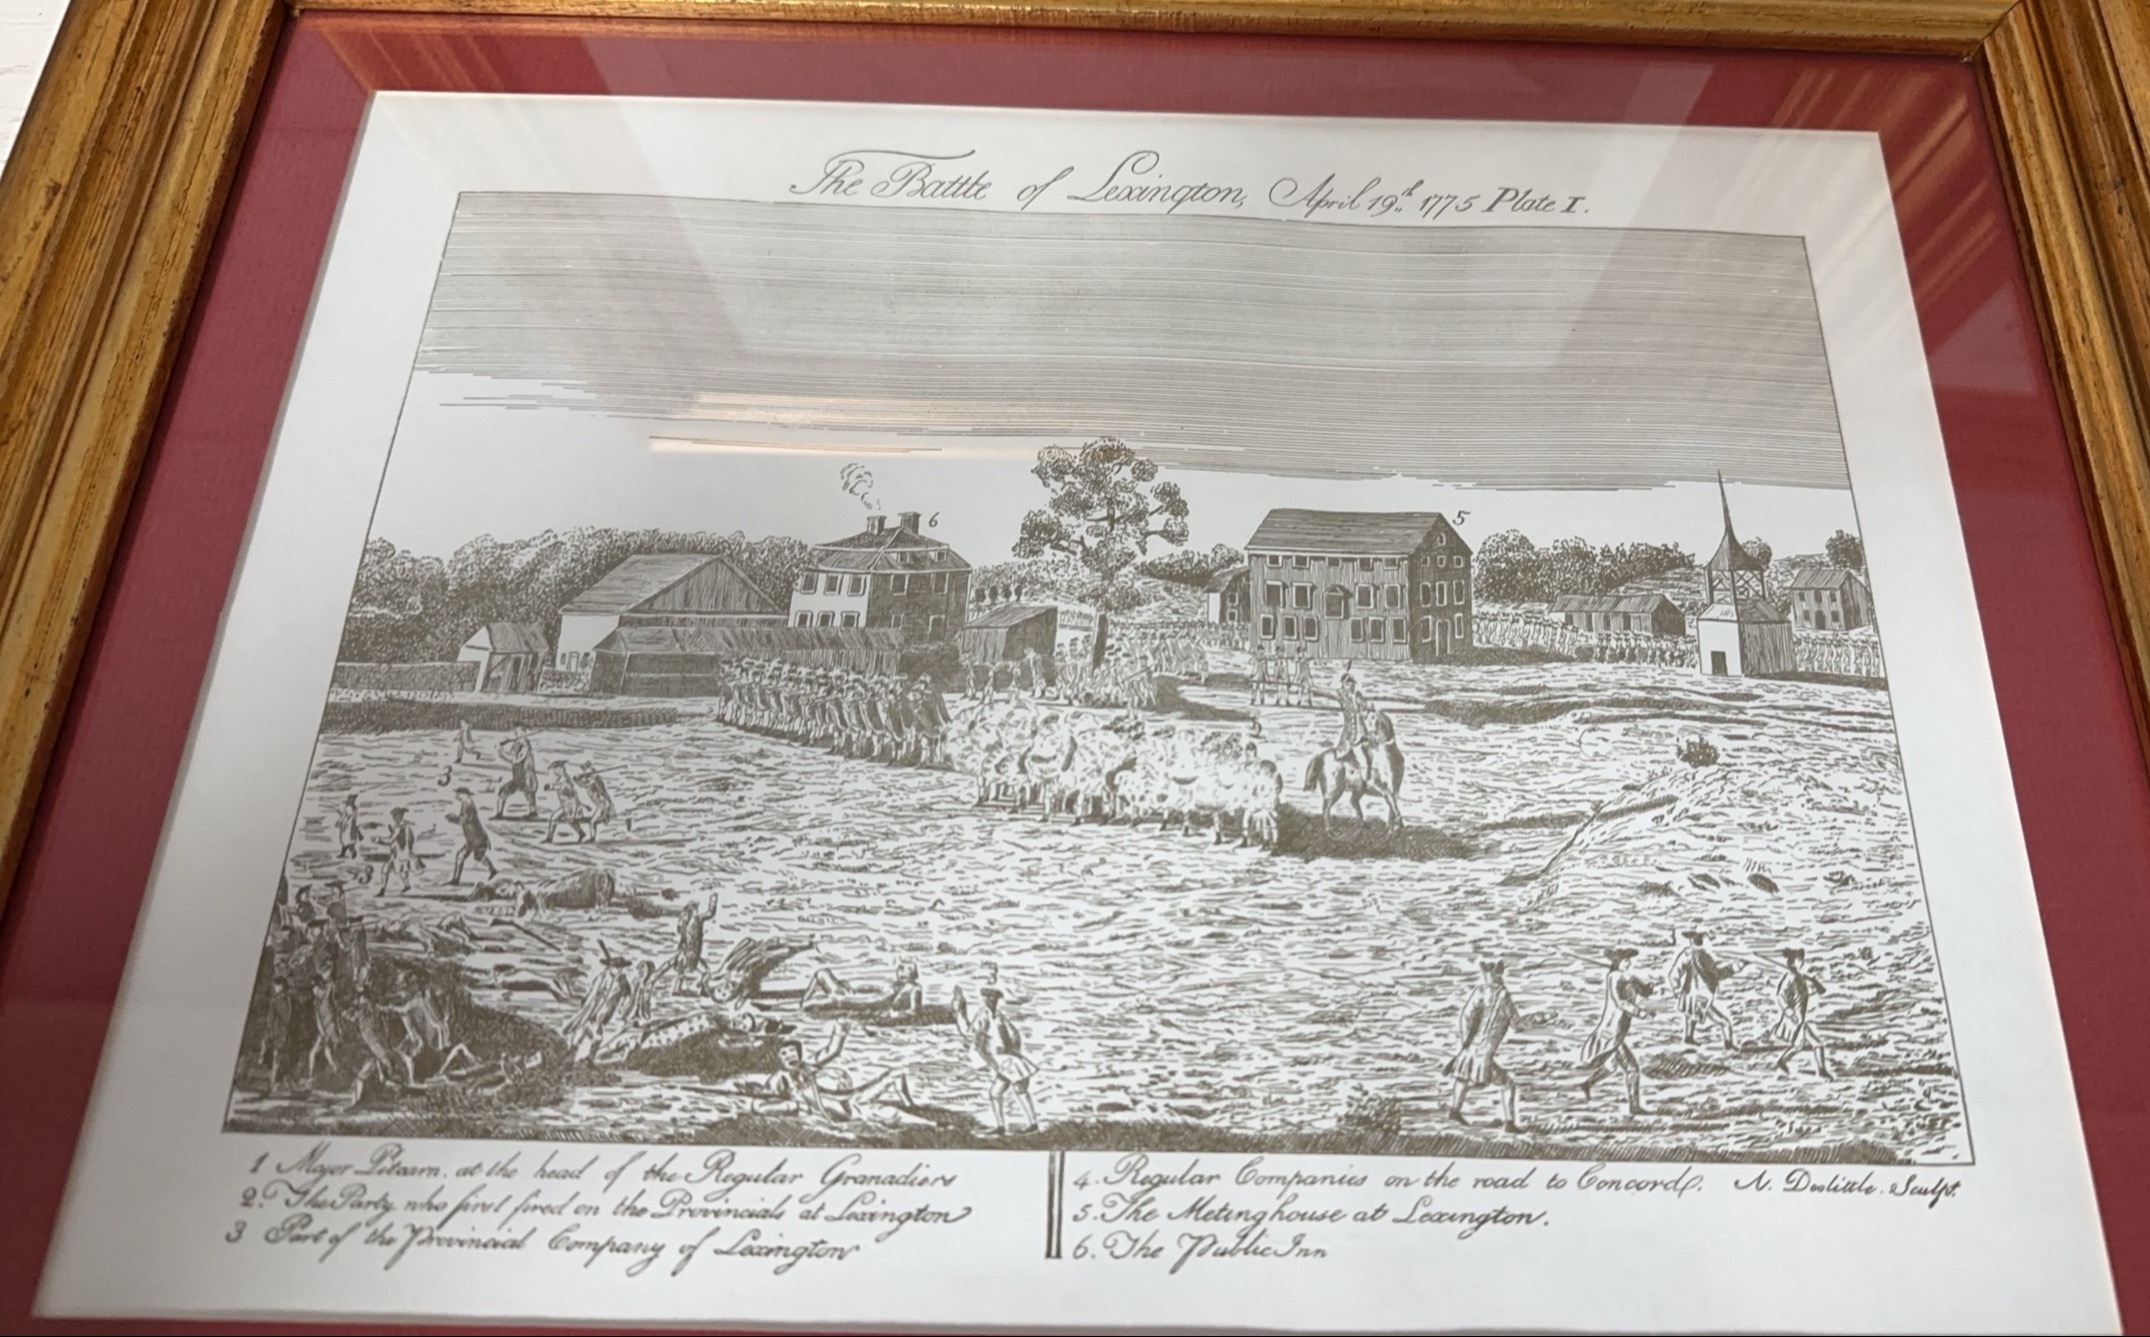 The Battle of Lexington, April 19th. 1775 Plate I.
6
5
3
2
1 Major Pitcarn. at the head of the Regular Granadiers
2. The Party who first fired on the Provincials at Lexington
3 Part of the Provincial Company of Lexington
4. Regular Companies on the road to Concord. N. Doolittle. Sculpt.
5. The Metinghouse at Lexington.
6. The Public Inn